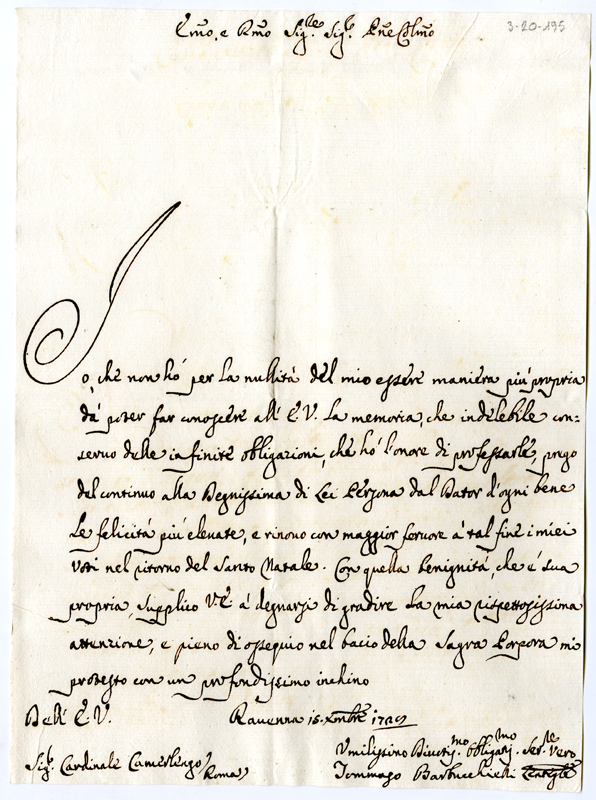 3-20-195
Emo, e Rmo Sigre Sigr Pne Colmo
Io, che non hò per la nullità del mio essere maniera più propria
dà poter far conoscere all' E.V. la memoria, che indelebile con=
servo delle infinite obligazioni, che hò l'onore di professarle, prego
del continuo alla Degnissima di Lei Persona dal Dator d'ogni bene
le felicità più elevate, e rinovo con maggior fervore à tal fine i miei
voti nel ritorno del Santo Natale. Con quella benignità, che è sua
propria, supplico V.E. à degnarsi di gradire la mia rispettosissima
attenzione, e pieno di ossequio nel bacio della Sagra Porpora mi
protesto con un profondissimo inchino
Dell' E.V.
Ravenna 15. Xmbre
Umilissimo Divotismo Obligatismo Serre Vero
Sigr Cardinale Camerlengo
Roma
Tommaso Barbucchielli